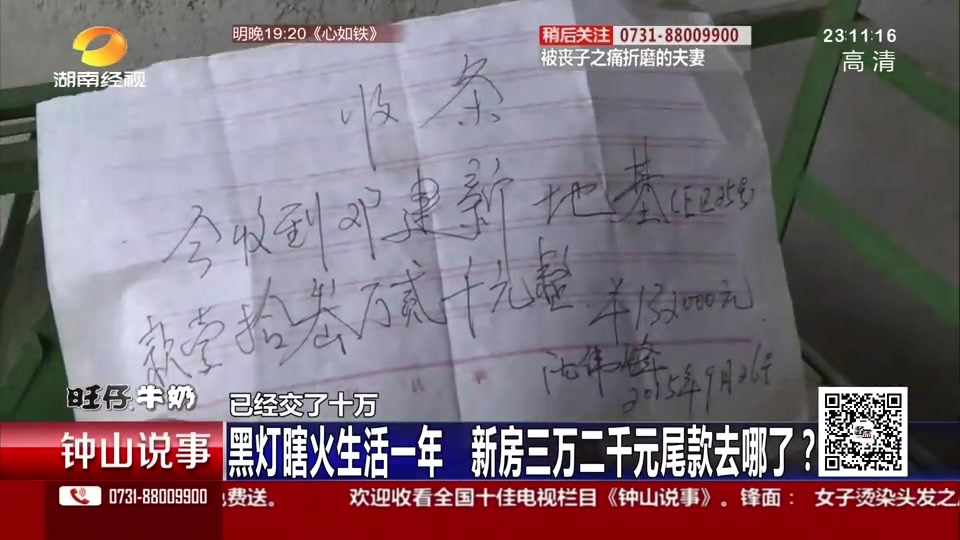 湖南经视
明晚19:20《心如铁》
稍后关注 0731-88009900
被丧子之痛折磨的夫妻
23:11:16
高清
收条
今收到邓建新地基(E区25号)
款壹拾叁万贰千元整.羊132000元.
伟峰
2015年9月26号
旺仔牛奶
已经交了十万
钟山说事
黑灯瞎火生活一年 新房三万二千元尾款去哪了？
0731-88009900
免费送。 欢迎收看全国十佳电视栏目《钟山说事》。锋面： 女子烫染头发之